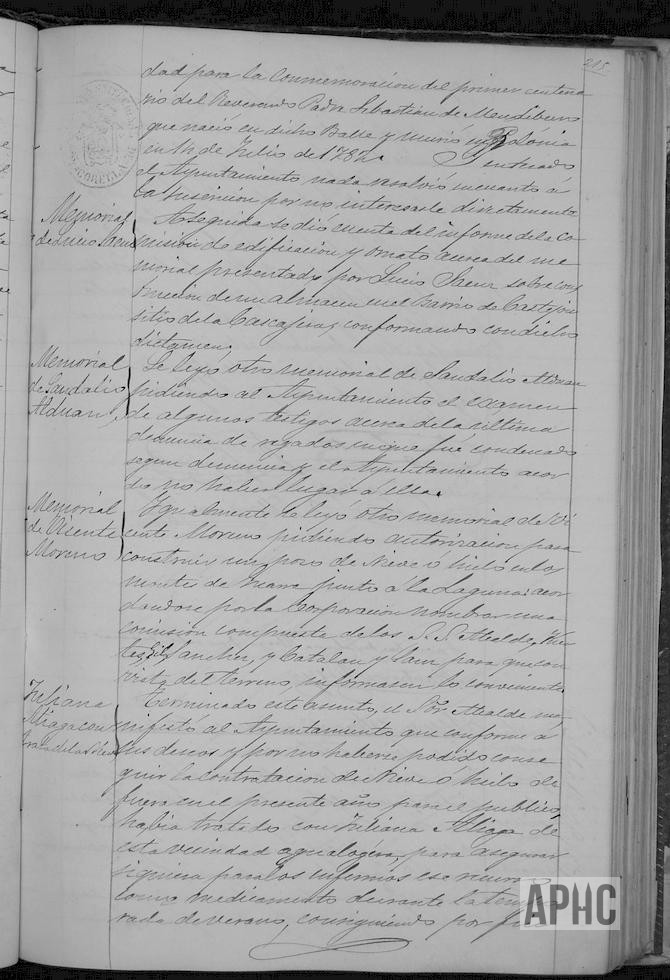 215
dad para la Conmemoracion del primer centena
rio del Reverendo Padre Sebastian de Mendiburu
que nació en dicho Valle y murió en Bolonia
en 14 de Julio de 1782. enterado
el Ayuntamiento nada resolvió en cuanto á
la suscricion por no interesarle directamente
Memorial
de Luis Saenz
Aseguida se dió cuenta del informe de la Co
mision de edificacion y ornato acerca del me
morial presentado por Luis Saenz sobre cons
truccion de un almacen en el Barrio de Castejon
sitio de la Cascajera, conformando con dicho
dictamen.
Memorial
de Sandalio
Alduan
Se leyó otro memorial de Sandalio Alduan
pidiendo al Ayuntamiento el examen
de algunos testigos acerca de la última
denuncia de regados en que fué condenado
segun denuncia y el Ayuntamiento acor
dó no haber lugar á ella.
Memorial
de Vicente
Moreno
Igualmente se leyó otro memorial de Vi
cente Moreno pidiendo autorizacion para
construir un pozo de Nieve o hielo en los
montes de junto á la Laguna: acor
dandose por la Corporacion nombrar una
comision compuesta de los S.S. Alcalde,
Gil, Sanchez, y Catalan y para que con
vista del terreno, informasen lo conveniente.
Juliana
Aliaga con
trata de la Nieve
Terminado este asunto, el Sor. Alcalde ma
nifestó al Ayuntamiento que conforme á
sus deseos y por no haberse podido conse
guir la contratacion de Nieve o hielo de
fuera en el presente año para el publico,
habia tratado con Juliana Aliaga de
esta vecindad para asegurar
siquiera para los enfermos ese
como medicamento durante la tempo
rada de verano, consiguiendo por fin
APHC